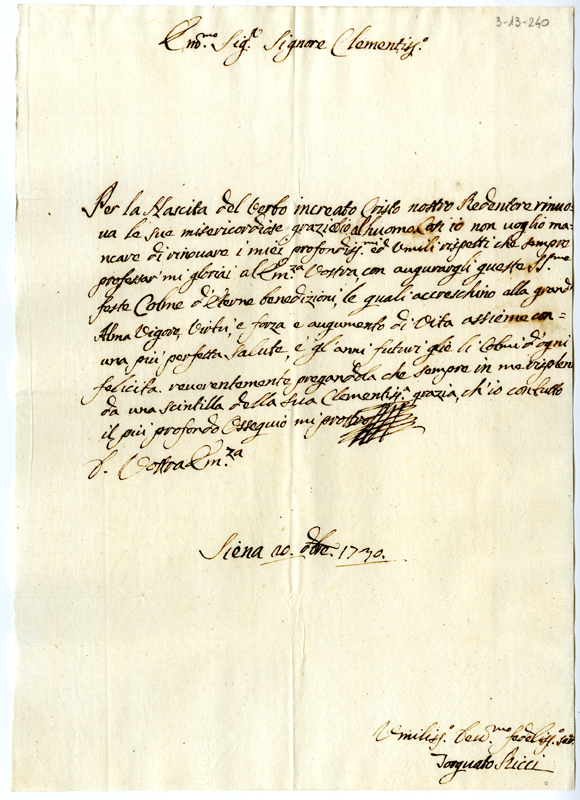 3-13-240
Em.mo Sig.r Signore Clementiss.o
Per la Nascita del Verbo increato Cristo nostro Redentore rinuo=
va le sue misericordiose grazie al huomo Così io non uoglio ma=
ncare di rinouare i miei profondiss.mi ed Vmili rispetti che sempre
professar' mi gloriai al Em.za Vostra con augurargli queste SS.me
feste Colme d'Eterne benedizioni, le quali accreschino alla grand'
Alma Vigore, Virtù, e forza e augumento di Vita assieme con=
una più perfetta salute, e gl'anni futuri glie li Colmi d'ogni
felicita. reuerentemente pregandola che sempre in me risplen
da una scintilla della sua Clementiss.a grazia, ch'io con tutto
il più profondo Ossequio mi prostro
D. Vostra Em.za
Siena 20. Xbre. 1730.
Vmiliss.o Deu.mo fedeliss.o ser.
Torquato Ricci